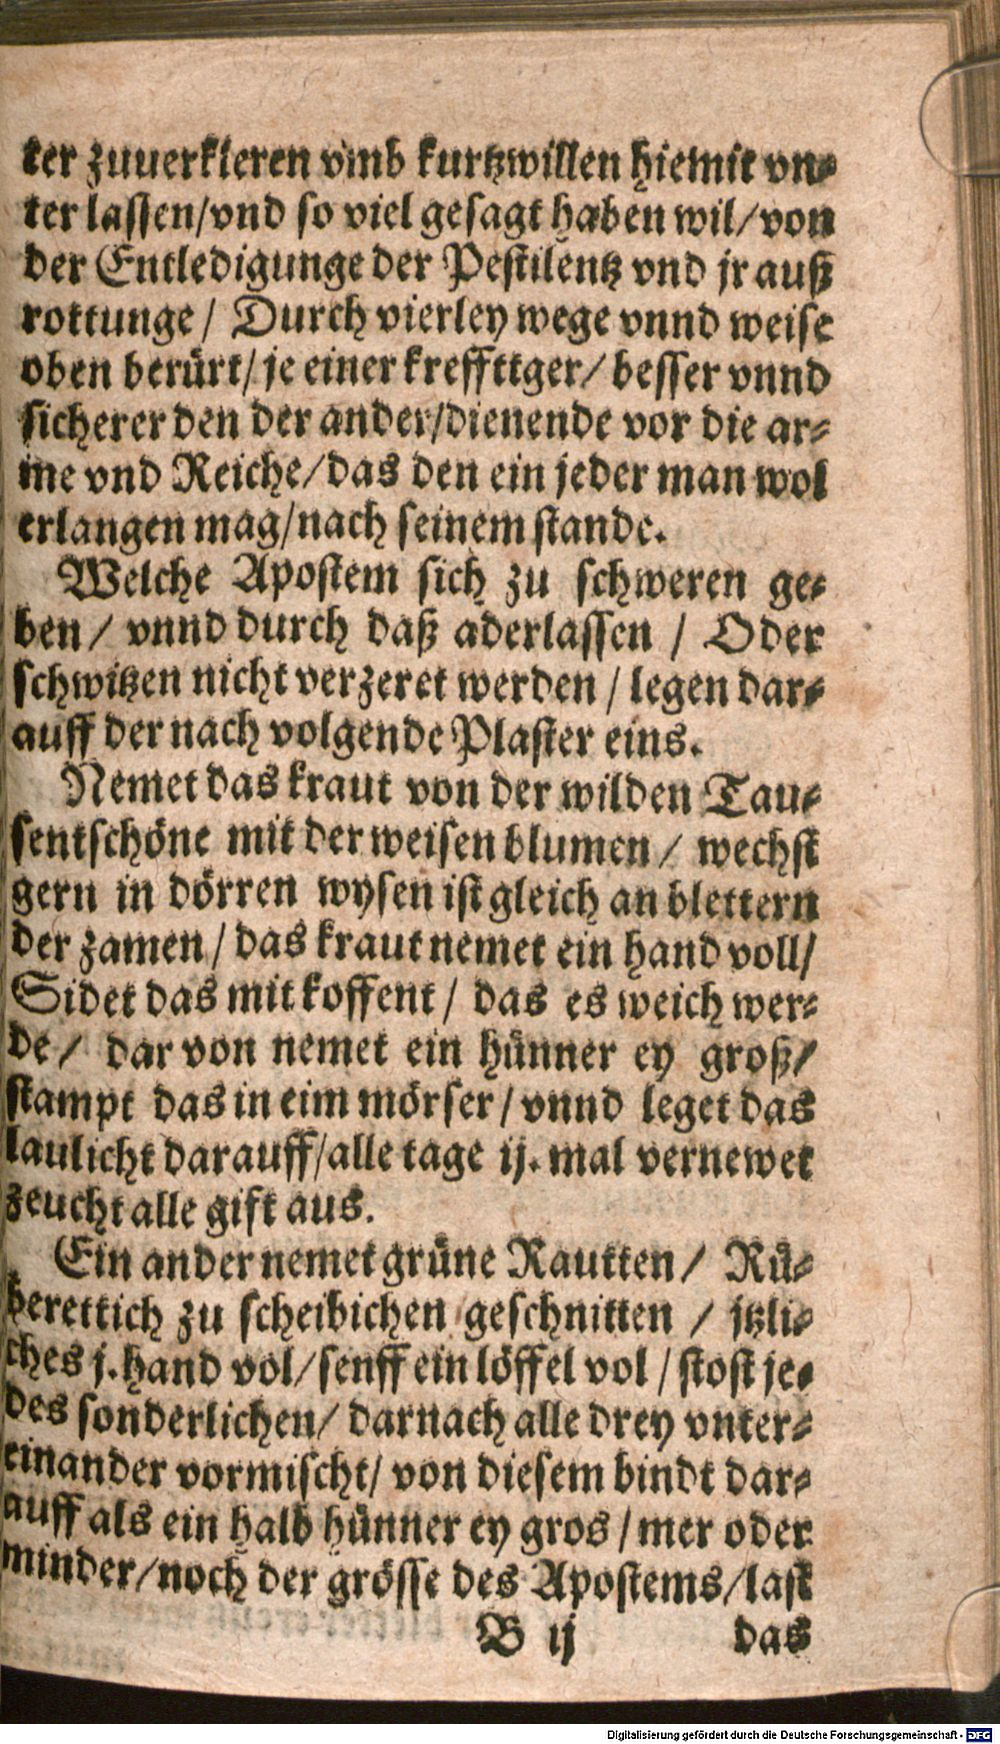 ter zuuerkleren vmb kurtzwillen hiemit vn⸗
ter lassen/vnd so viel gesagt haben wil/von
der Entledigunge der Pestilentz vnd jr auß
rottunge / Durch vierley wege vnnd weise
oben berürt/je einer kreffttger/ besser vnnd
sicherer den der ander/dienende vor die ar⸗
me vnd Reiche/das den ein jeder man wol
erlangen mag/nach seinem stande.
Welche Apostem sich zu schweren ge⸗
ben / vnnd durch daß aderlassen / Oder
schwitzen nicht verzeret werden / legen dar⸗
auff der nach volgende Plaster eins.
Nemet das kraut von der wilden Tau⸗
sentschöne mit der weisen blumen / wechst
gern in dörren wysen ist gleich an blettern
der zamen / das kraut nemet ein hand voll/
Sidet das mit koffent / das es weich wer⸗
de / dar von nemet ein hünner ey groß/
stampt das in eim mörser / vnnd leget das
laulicht darauff/alle tage ij. mal vernewet
zeucht alle gift aus.
Ein ander nemet grüne Rautten / Rü⸗
berettich zu scheibichen geschnitten / jtzli⸗
ches j. hand vol/senff ein löffel vol / stost je⸗
des sonderlichen/ darnach alle drey vnter⸗
einander vormischt/ von diesem bindt dar⸗
auff als ein halb hünner ey gros / mer oder
minder/noch der grösse des Apostems/last
B ij das
Digitalisierung gefördert durch die Deutsche Forschungsgemeinschaft - DFG